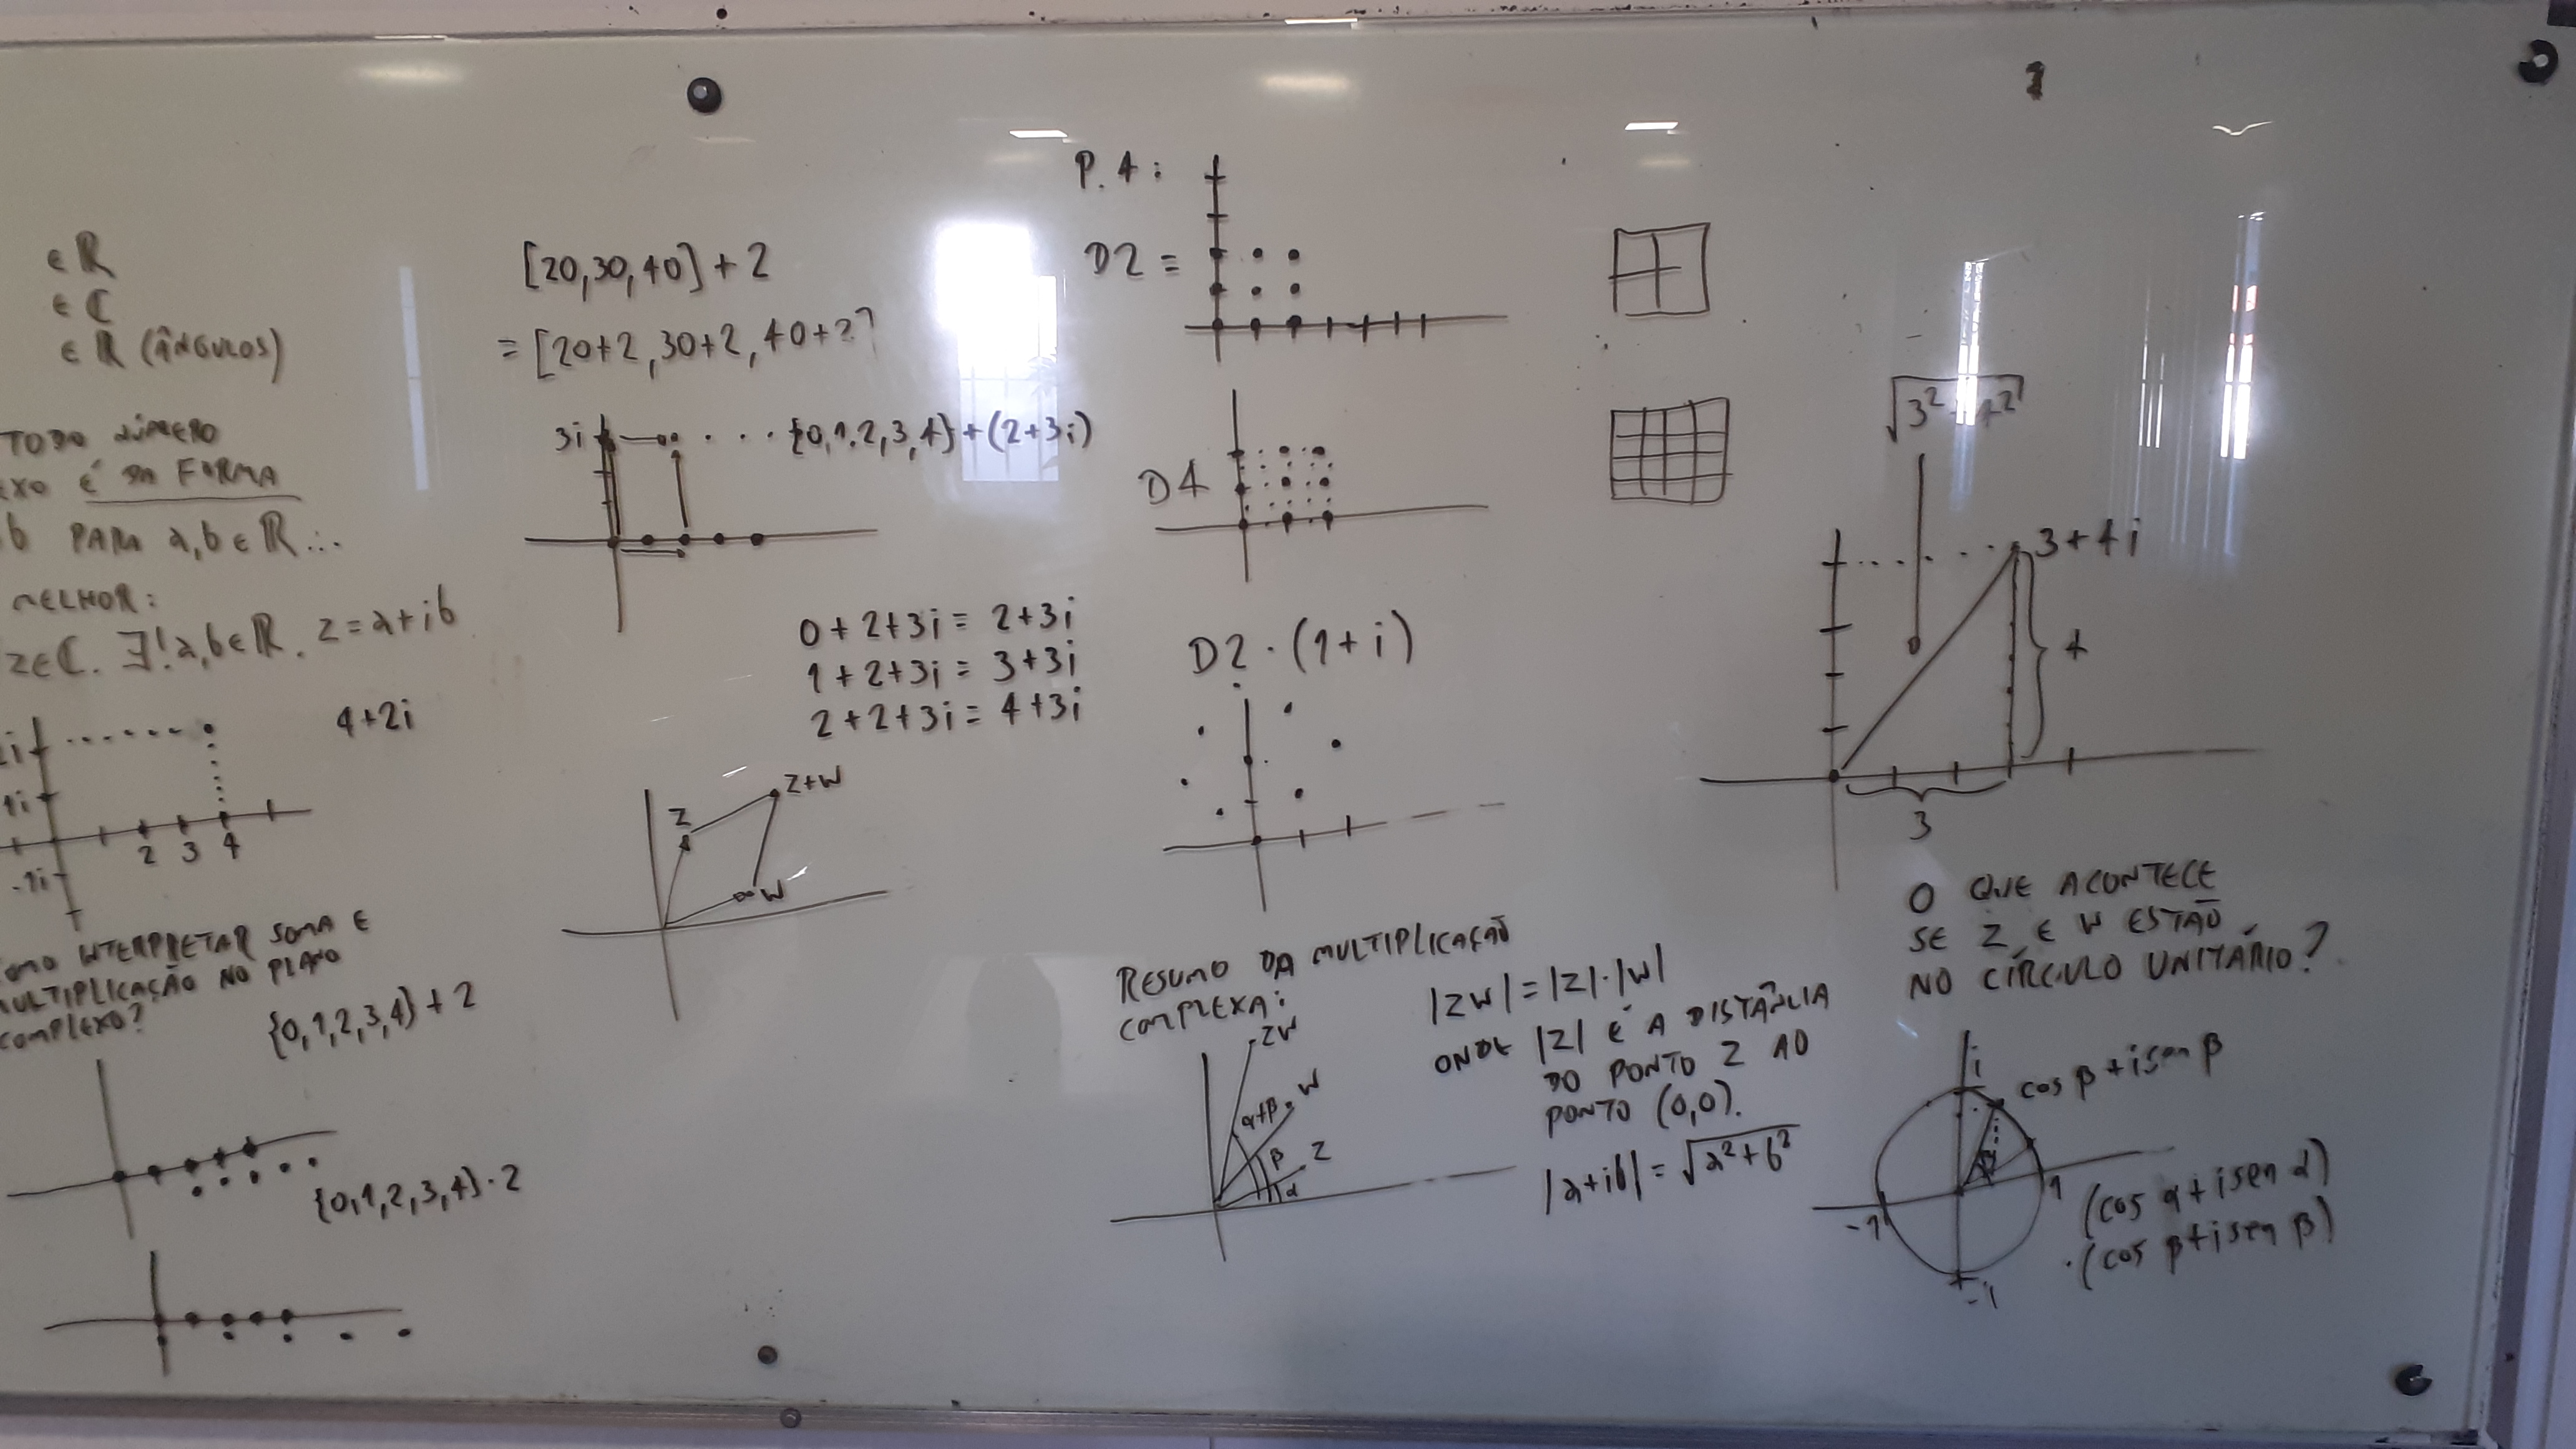 ∈ ℝ
∈ ℂ
∈ ℝ (ÂNGULOS)
TODO NÚMERO
EXO É DA FORMA
b PARA a,b ∈ ℝ...
MELHOR:
z∈ℂ. ∃!a,b∈ℝ. z=a+ib
4+2i
2i
1i
-1i
2 3 4
COMO INTERPRETAR SOMA E
MULTIPLICAÇÃO NO PLANO
COMPLEXO?
{0,1,2,3,4}+2
{0,1,2,3,4}·2
[20,30,40]+2
=[20+2,30+2,40+2]
3i
{0,1,2,3,4}+(2+3i)
0+2+3i = 2+3i
1+2+3i = 3+3i
2+2+3i = 4+3i
z
z+w
w
P.4:
D2 =
D4
D2·(1+i)
RESUMO DA MULTIPLICAÇÃO
COMPLEXA:
zw
w
α+β
β
z
α
|zw|=|z|·|w|
ONDE |z| É A DISTÂNCIA
DO PONTO z AO
PONTO (0,0).
|a+ib|=√a²+b²
√3²+4²
3+4i
4
3
O QUE ACONTECE
SE z E w ESTÃO
NO CÍRCULO UNITÁRIO?
i
cos β+isen β
-1
1
-i
(cos α+isen α)
·(cos β+isen β)